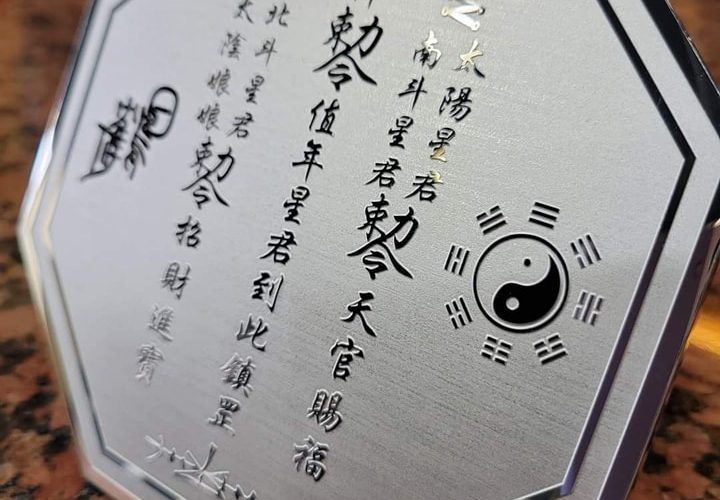 太陽星君
南斗星君
勅令天官賜福
勅令值年星君到此鎮罡
北斗星君
太陰娘娘
勅令招財進寶